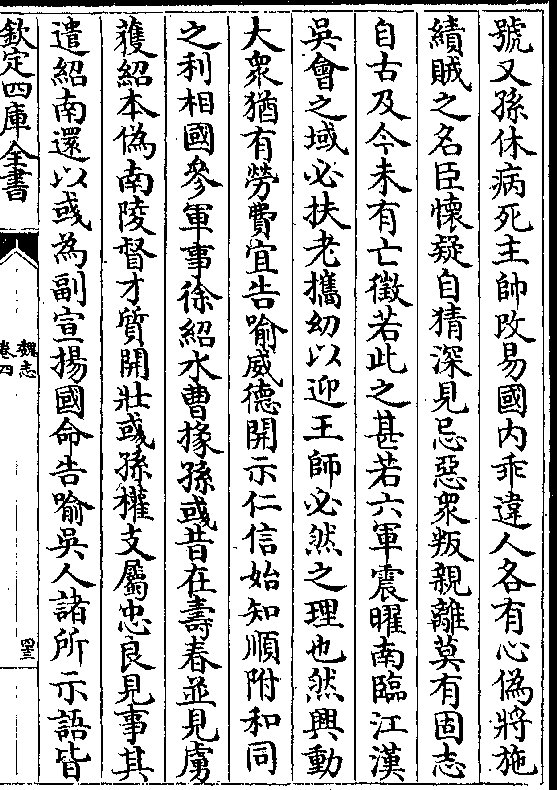 號又孫休病死主帥改易國内乖違人各有心偽將施
績賊之名臣懷疑自猜深見忌惡衆叛親離莫有固志
自古及今未有亡徵若此之甚若六軍震曜南臨江漢
吳會之域必扶老攜幼以迎王師必然之理也然興動
大衆猶有勞費宜告喻威德開示仁信始知順附和同
之利相國參軍事徐紹水曹掾孫彧昔在壽春並見虜
䕶紹本偽南陵督才質開壯彧孫權支屬忠良見事其
遣紹南還以彧為副宣揚國命告喻吳人諸所示語皆
欽定四庫全書
魏志
卷四